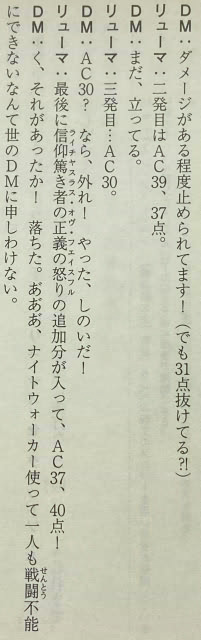 DM：ダメージがある程度止められてます！（でも31点抜けてる?!）
リューマ：二発目はAC39、37点。
DM：まだ、立ってる。
リューマ：三発目…AC30。
DM：AC30？　なら、外れ！　やった、しのいだ！
リューマ：最後に信仰篤き者の正義の怒りの追加分が入って、AC37、40点！
ライチャス・ラス・オヴ・ザ・フェイスフル
DM：く、それがあったか！　落ちた。ああ゛あ゛、ナイトウォーカー使って一人も戦闘不能
せんとう
にできないなんて世のDMに申しわけない。